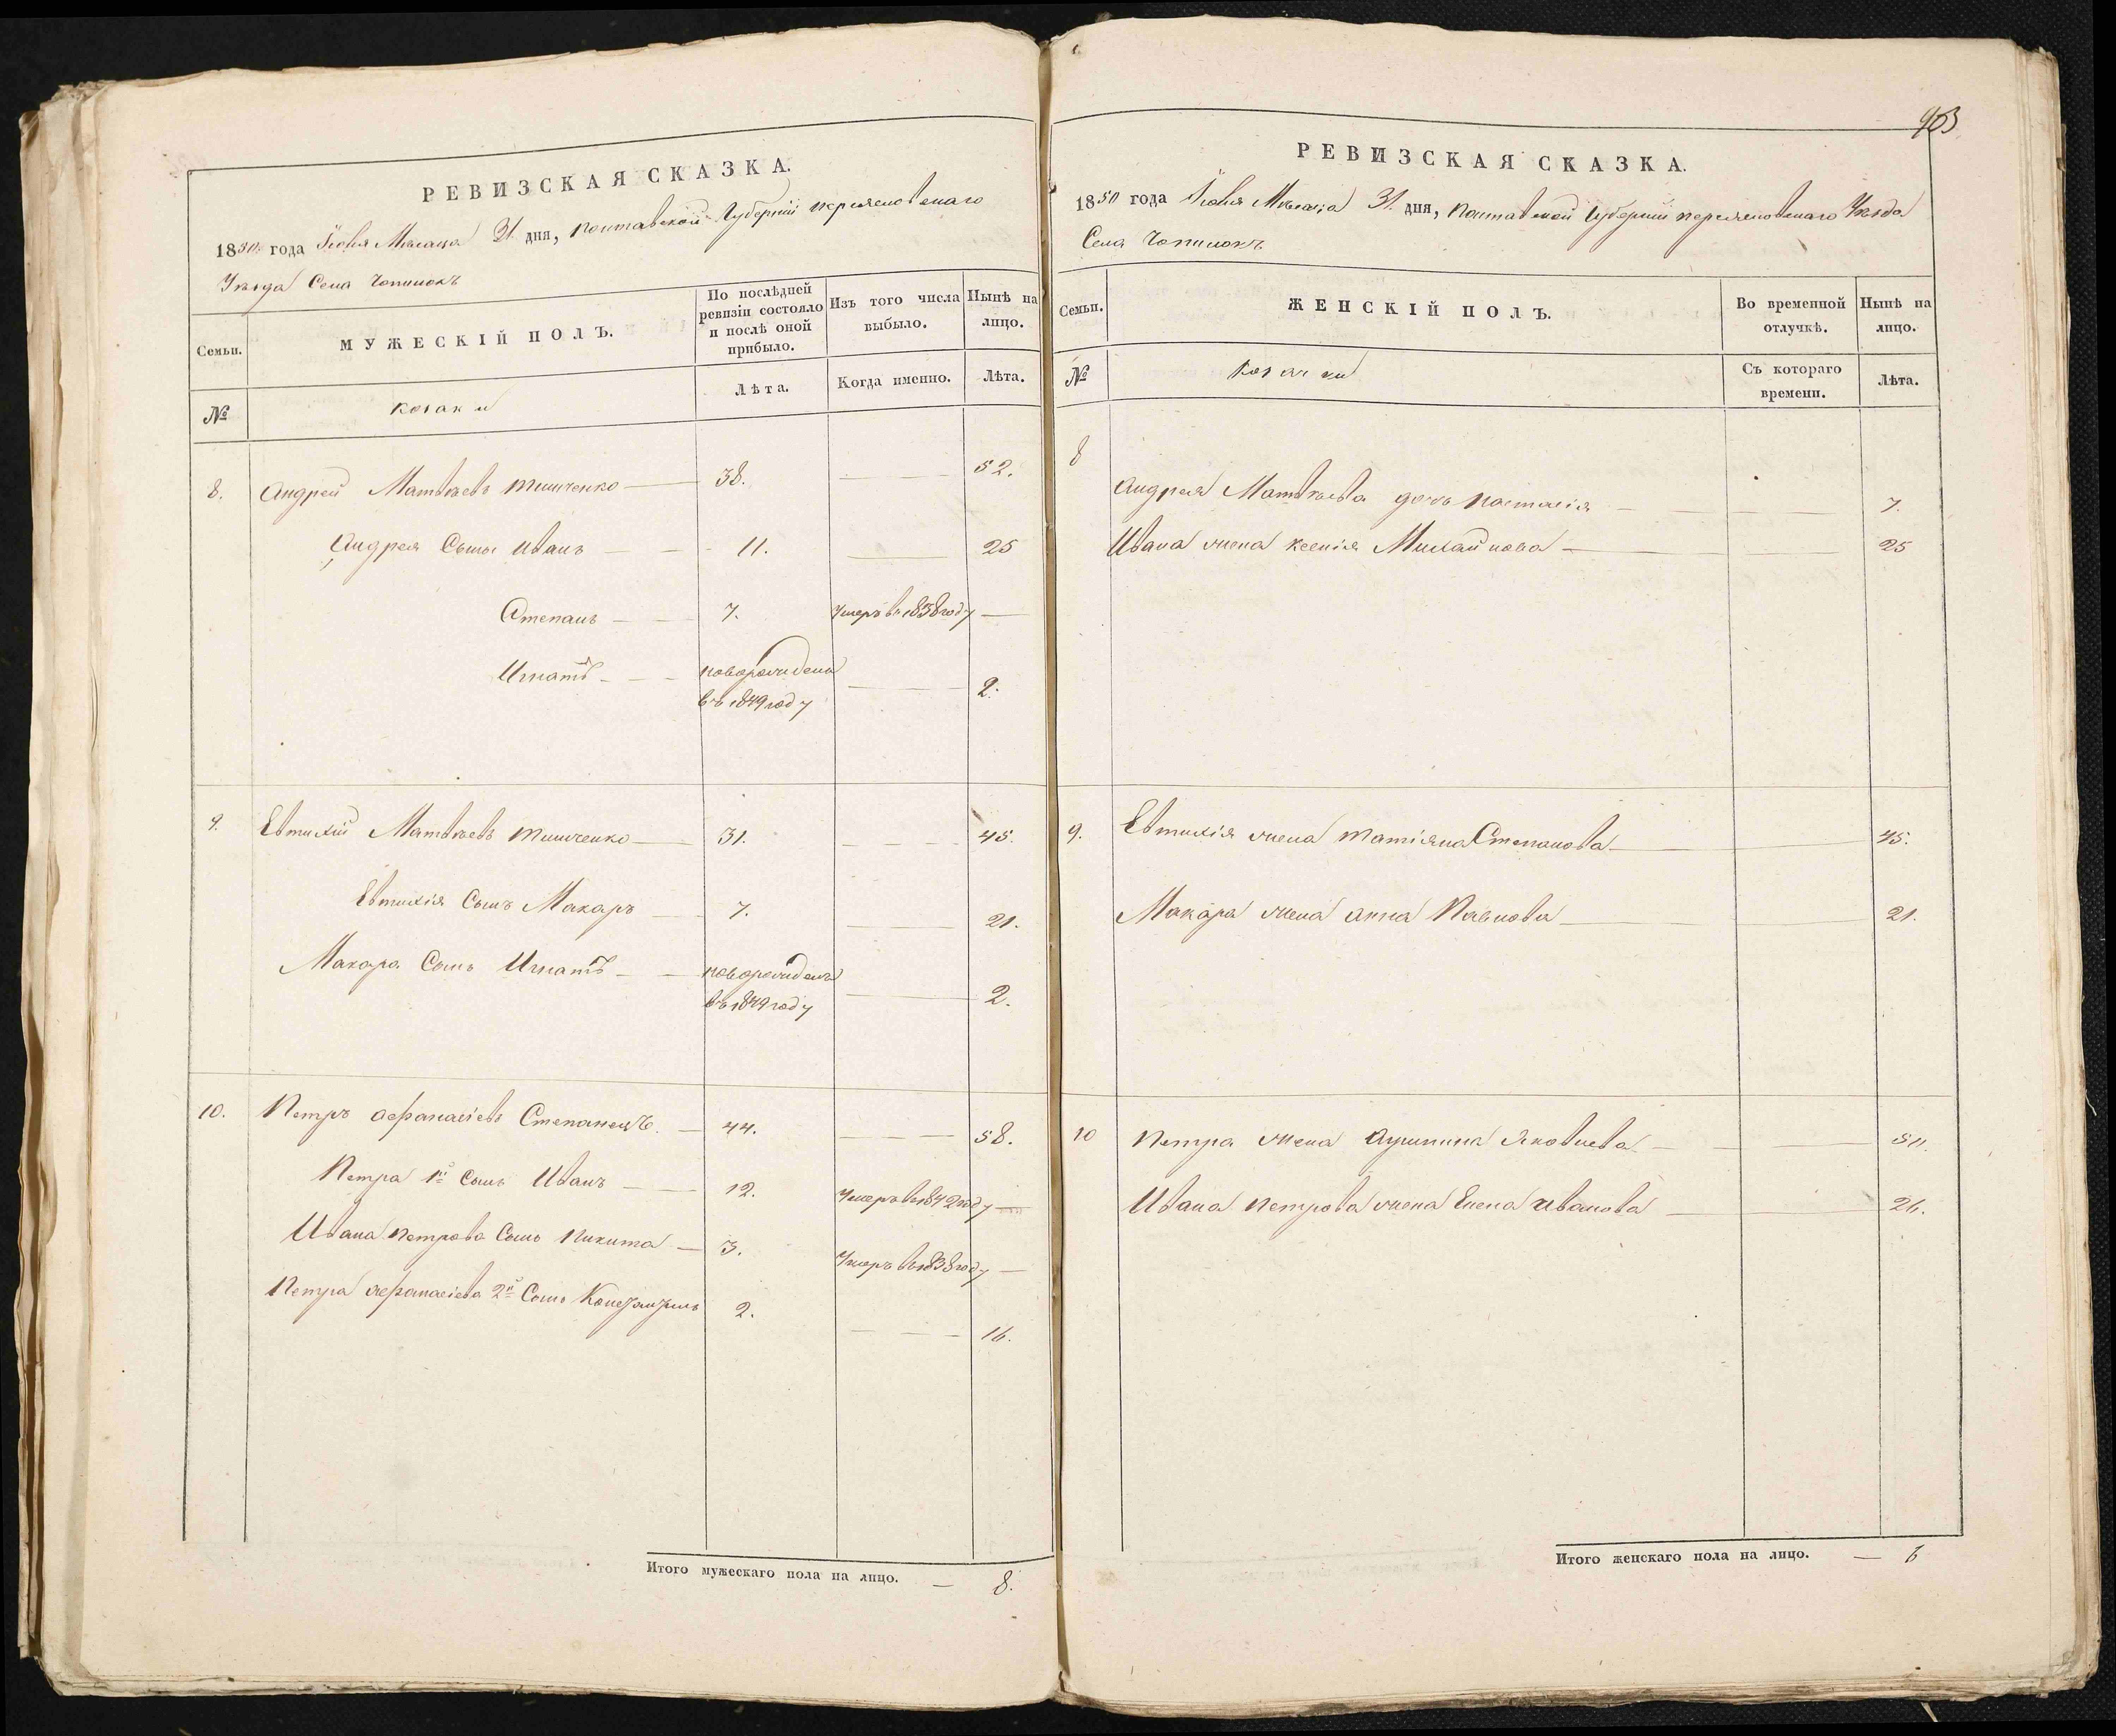 РЕВИЗСКАЯ СКАЗКА.
1850 года Іюля Мѣсяца 31 дня, полтавской Губерніи переяславскаго
Уѣзда Села Чопилокъ
Семьи.
МУЖЕСКІЙ ПОЛЪ.
По послѣдней ревизіи состояло и послѣ оной прибыло.
Изъ того числа выбыло.
Нынѣ на лицо.
№
козаки
Лѣта.
Когда именно.
Лѣта.
8. Андрей Матвѣевъ Тимченко 38. 52.
Андрея Сыны Иванъ 11. 25
Степанъ 7. Умеръ въ 1838 году
Игнатъ новорожденъ 2.
въ 1849 году
9. Евтихій Матвѣевъ Тимченко 31. 45.
Евтихія Сынъ Макаръ 7. 21.
Макара Сынъ Игнатъ новорожденъ 2.
въ 1849 году
10. Петръ афанасіевъ Степанецъ. 44. 58.
Петра 1й Сынъ Иванъ 12. Умеръ въ 1842 году
Ивана петрова Сынъ Никита 3. Умеръ въ 1838 году
Петра афанасіева 2й Сынъ 2. 16.
Итого мужескаго пола на лицо. 8.
РЕВИЗСКАЯ СКАЗКА.
1850 года Іюля Мѣсяца 31 дня, полтавской Губерніи переяславскаго Уѣзда
Села Чопилокъ
Семьи.
ЖЕНСКІЙ ПОЛЪ.
Во временной отлучкѣ.
Нынѣ на лицо.
№
козачки
Съ котораго времени.
Лѣта.
8
Андрея Матвѣева дочь настасія 7.
Ивана жена ксенія Михайлова 25
9. Евтихія жена татіяна Степанова 45.
Макара жена анна Павлова 21.
10 петра жена Яковлева 50.
Ивана петрова жена Елена иванова 26.
Итого женскаго пола на лицо. 6